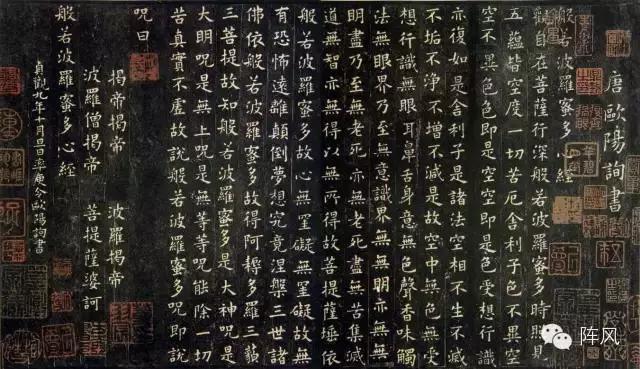 唐歐陽詢書
般若波羅蜜多心經
觀自在菩薩行深般若波羅蜜多時照見
五蘊皆空度一切苦厄舍利子色不異空
空不異色色即是空空即是色受想行識
亦復如是舍利子是諸法空相不生不滅
不垢不淨不增不減是故空中無色無受
想行識無眼耳鼻舌身意無色聲香味觸
法無眼界乃至無意識界無無明亦無無
明盡乃至無老死亦無老死盡無苦集滅
道無智亦無得以無所得故菩提薩埵依
般若波羅蜜多故心無罣礙無罣礙故無
有恐怖遠離顛倒夢想究竟涅槃三世諸
佛依般若波羅蜜多故得阿耨多羅三藐
三菩提故知般若波羅蜜多是大神呪是
大明呪是無上呪是無等等呪能除一切
苦真實不虛故說般若波羅蜜多呪即說
呪曰
揭帝揭帝 波羅揭帝
波羅僧揭帝 菩提薩婆訶
般若波羅蜜多心經
貞觀九年十月旦日率更令歐陽詢書
阵风